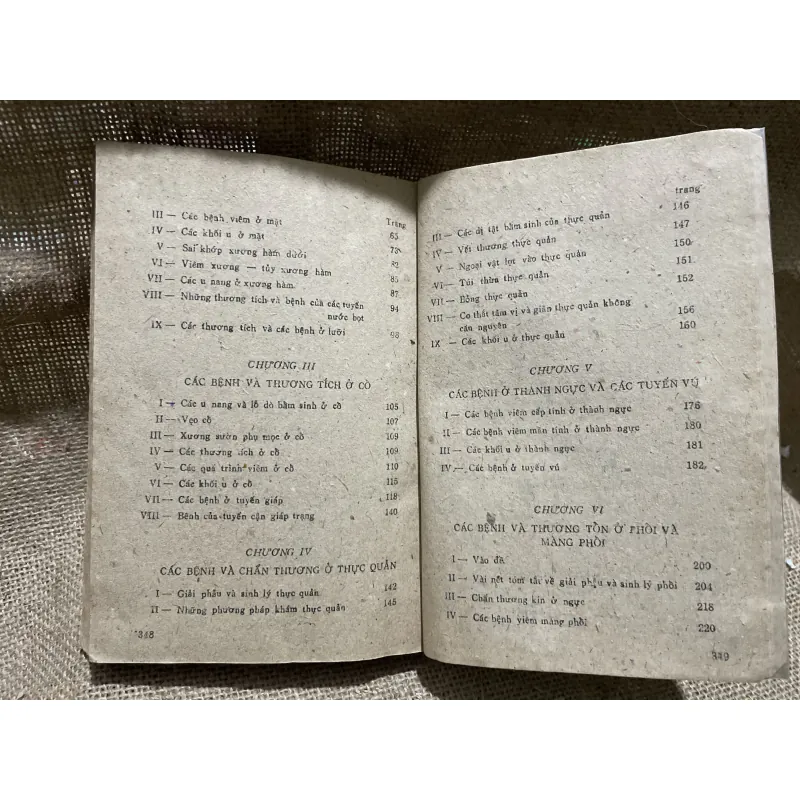 Trang
III — Các bệnh viêm ở mặt 65
IV — Các khối u ở mặt
V — Sai khớp xương hàm dưới
VI — Viêm xương — tủy xương hàm
VII — Các u nang ở xương hàm. 87
VIII — Những thương tích và bệnh của các tuyến
nước bọt 94
IX — Các thương tích và các bệnh ở lưỡi 98
CHƯƠNG III
CÁC BỆNH VÀ THƯƠNG TÍCH Ở CỔ
I — Các u nang và lỗ dò bẩm sinh ở cổ 105
II — Vẹo cổ 107
III — Xương sườn phụ mọc ở cổ 109
IV — Các thương tích ở cổ 109
V — Các quá trình viêm ở cổ 110
VI — Các khối u ở cổ 115
VII — Các bệnh ở tuyến giáp 118
VIII — Bệnh của tuyến cận giáp trạng 140
CHƯƠNG IV
CÁC BỆNH VÀ CHẤN THƯƠNG Ở THỰC QUẢN
I — Giải phẫu và sinh lý thực quản 142
II — Những phương pháp khám thực quản 145
348
trang
III — Các dị tật bẩm sinh của thực quản 146
IV — Vết thương thực quản 147
V — Ngoại vật lọt vào thực quản 150
VI — Túi thừa thực quản 151
VII — Bỏng thực quản 152
VIII — Co thắt tâm vị và giãn thực quản không
căn nguyên 156
IX — Các khối u ở thực quản 160
CHƯƠNG V
CÁC BỆNH Ở THÀNH NGỰC VÀ CÁC TUYẾN VÚ
I — Các bệnh viêm cấp tính ở thành ngực 176
II — Các bệnh viêm mãn tính ở thành ngực 180
III — Các khối u ở thành ngực 181
IV — Các bệnh ở tuyến vú 182
CHƯƠNG VI
CÁC BỆNH VÀ THƯƠNG TỔN Ở PHỔI VÀ
MÀNG PHỔI
I — Vào đề 200
II — Vài nét tóm tắt về giải phẫu và sinh lý phổi 204
III — Chấn thương kín ở ngực 218
IV — Các bệnh viêm màng phổi 220
349